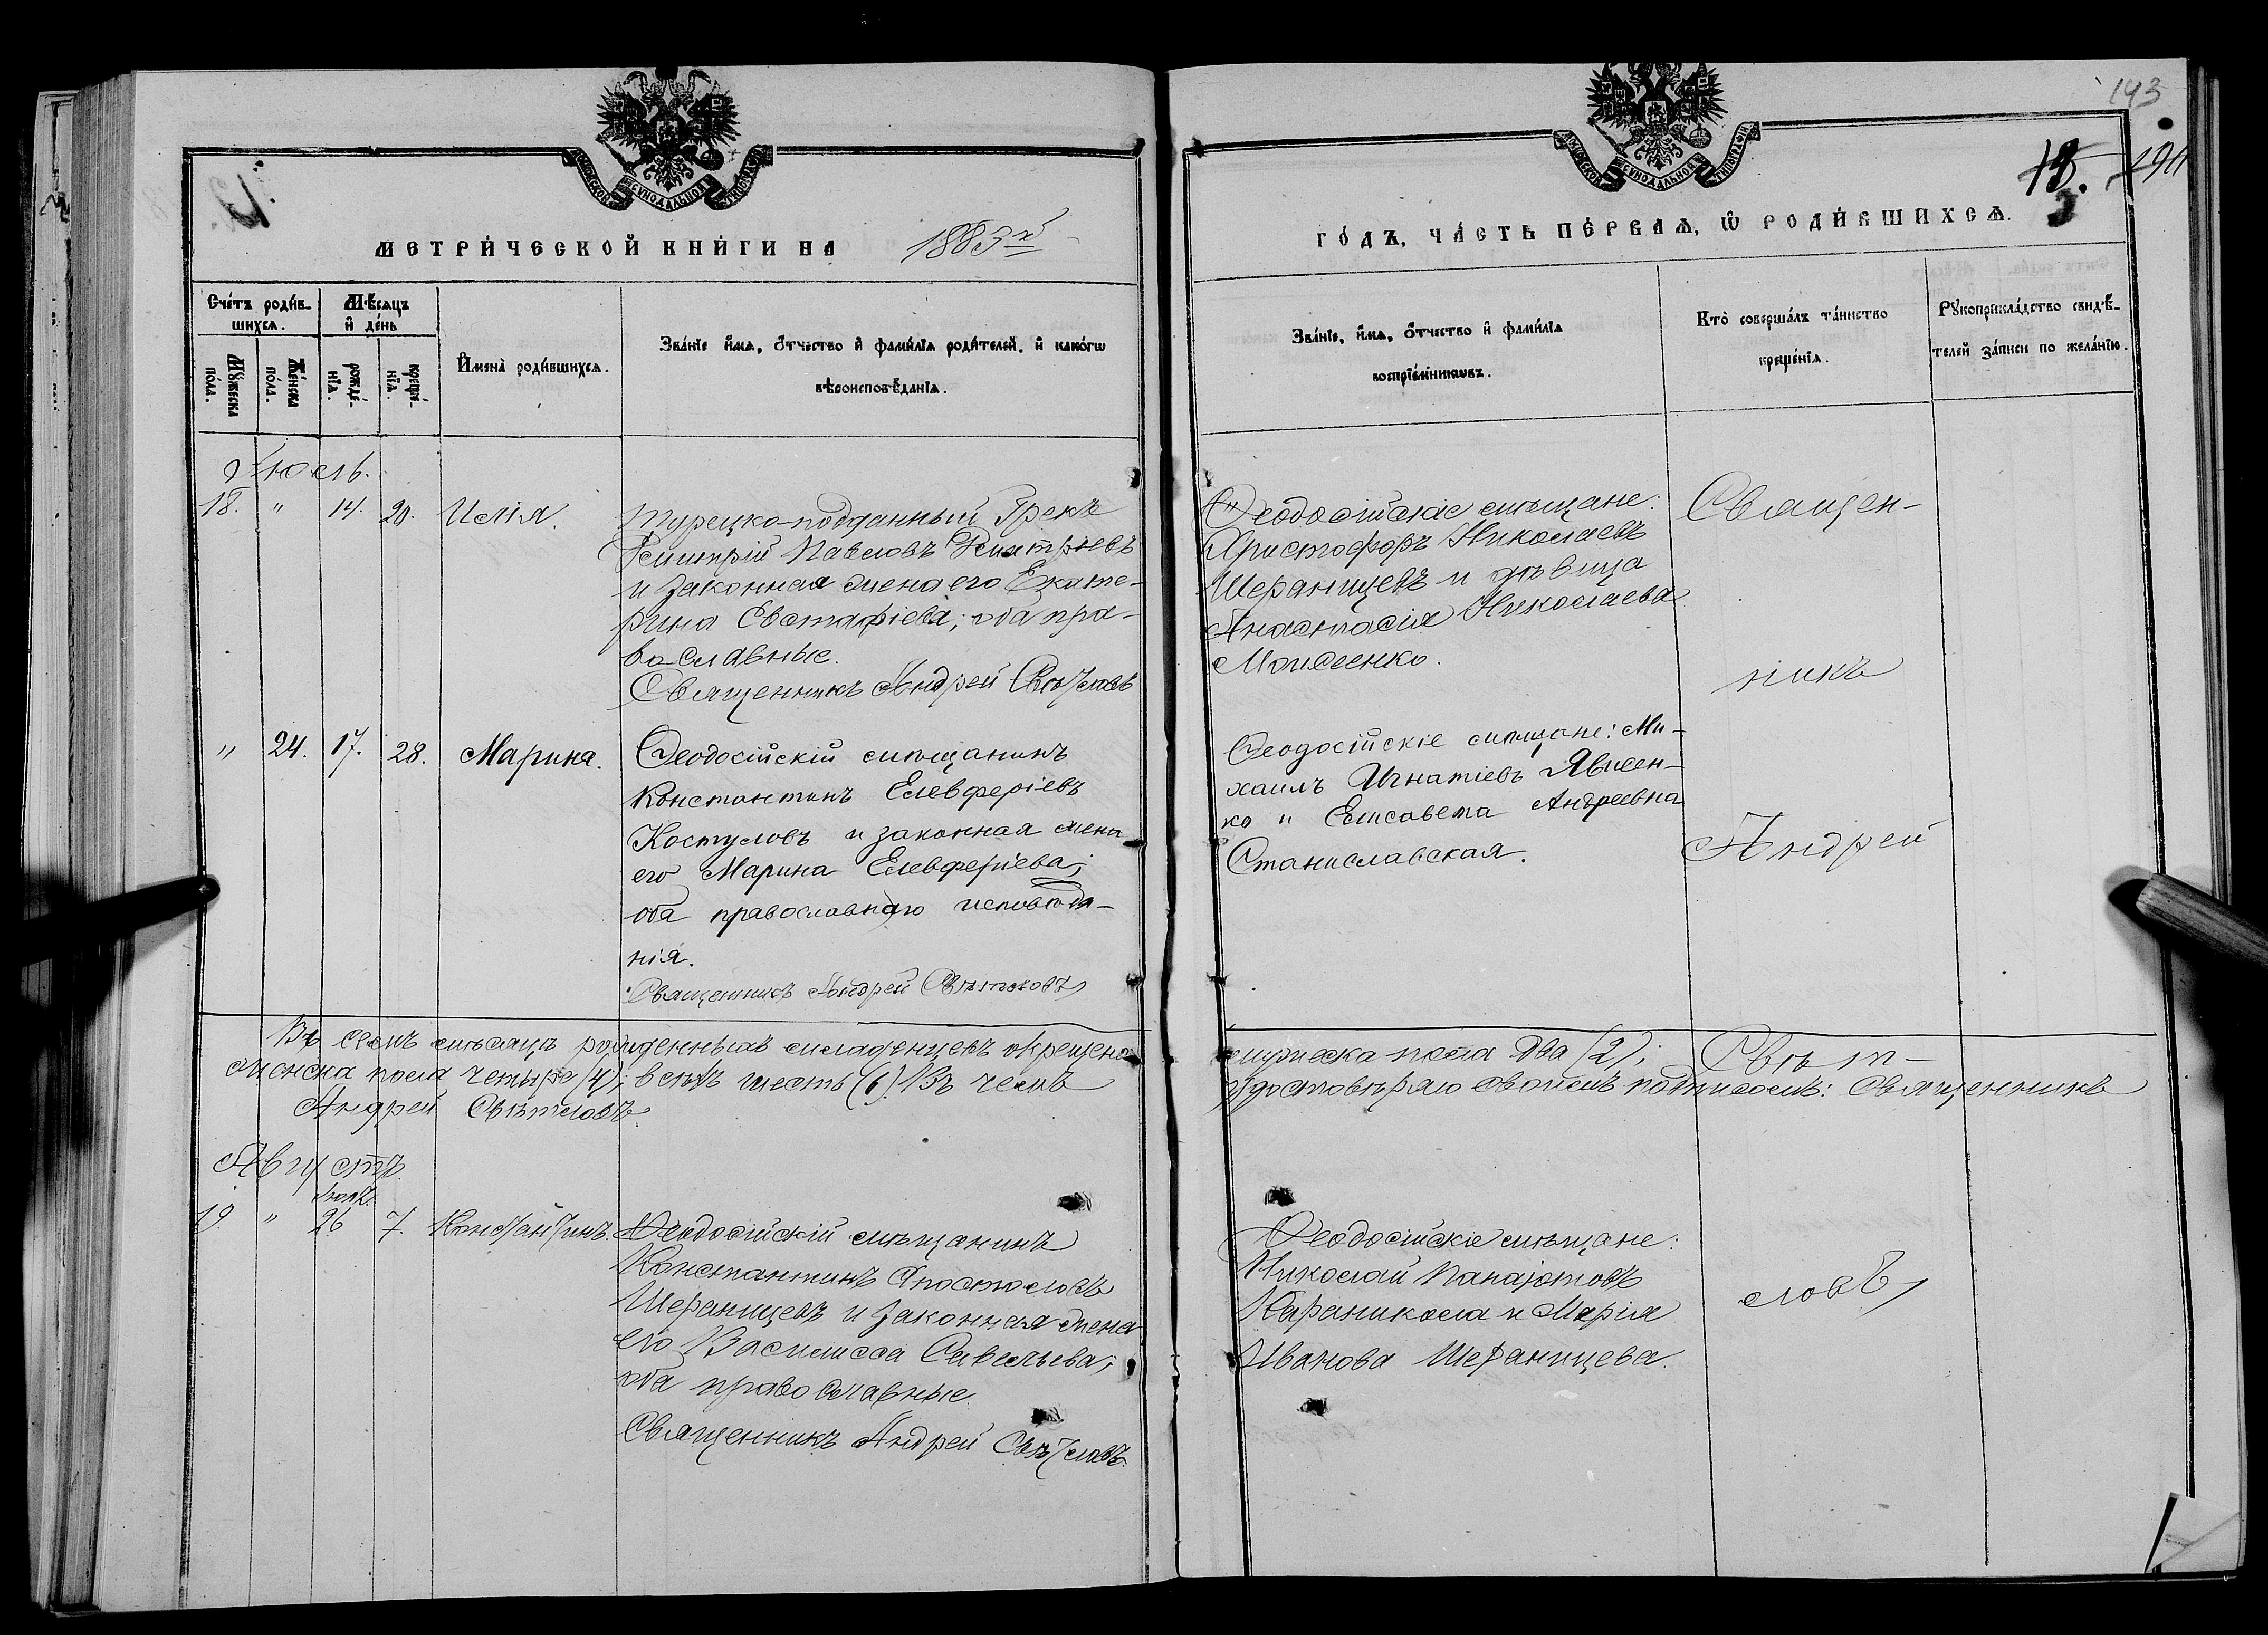 143
13.
МЕТРИЧЕСКОЙ КНИГИ НА 1883й
ГОДЪ, ЧАСТЬ ПЕРВАЯ, Ѡ РОДИВШИХСЯ.
Счетъ родив-
шихся.
Мужеска пола.
Женска пола.
Мѣсяцъ и день
рожде-
нія.
креще-
нія.
Имена родившихся.
Званіе имя, отчество и фамилія родителей, и какогѡ
вѣроисповѣданія.
Званіе, имя, отчество и фамилія
воспріемниковъ.
Кто совершалъ таинство
крещенія.
Рукоприкладство свидѣ-
телей записи по желанію.
Іюль.
18. " 14. 20. Илія.
Турецко-подданный Грекъ
Димитрій Павловъ Димтріевъ
и законная жена его Екате-
рина Евстафіева; оба пра-
во-славные.
Священникъ Андрей Свѣтловъ
Ѳеодосійскіе мѣщане:
Христофоръ Николаевъ
Шеранцевъ и дѣвица
Анастасія Николаева
Моисеенко.
Священ-
никъ
" 24. 17. 28. Марина.
Ѳеодосійскій мѣщанинъ
Константинъ Елевферіевъ
Костуловъ и законная жена
его Марина Елевферіева;
оба православнаго исповѣда-
нія.
Священникъ Андрей Свѣтловъ
Ѳеодосійскіе мѣщане: Ми-
хаилъ Игнатіевъ Явлен-
ко и Елисавета Андреевна
Станиславская.
Андрей
Въ семъ мѣсяцѣ рожденныхъ младенцевъ окрещено мужеска пола два (2);
женска пола четыре (4); всѣхъ шесть (6). Въ чемъ удостовѣряю своимъ подписомъ: Священникъ
Андрей Свѣтловъ.
Свѣт-
Августъ.
Іюля
19. " 26 7. Константинъ.
Ѳеодосійскій мѣщанинъ
Константинъ Апостоловъ
Шеранцевъ и законная жена
его Василисса Савельева;
оба православные.
Священникъ Андрей Свѣтловъ.
Ѳеодосійскіе мѣщане:
Николай Панаіотовъ
Караникола и Марія
Иванова Шеранцева.
ловъ